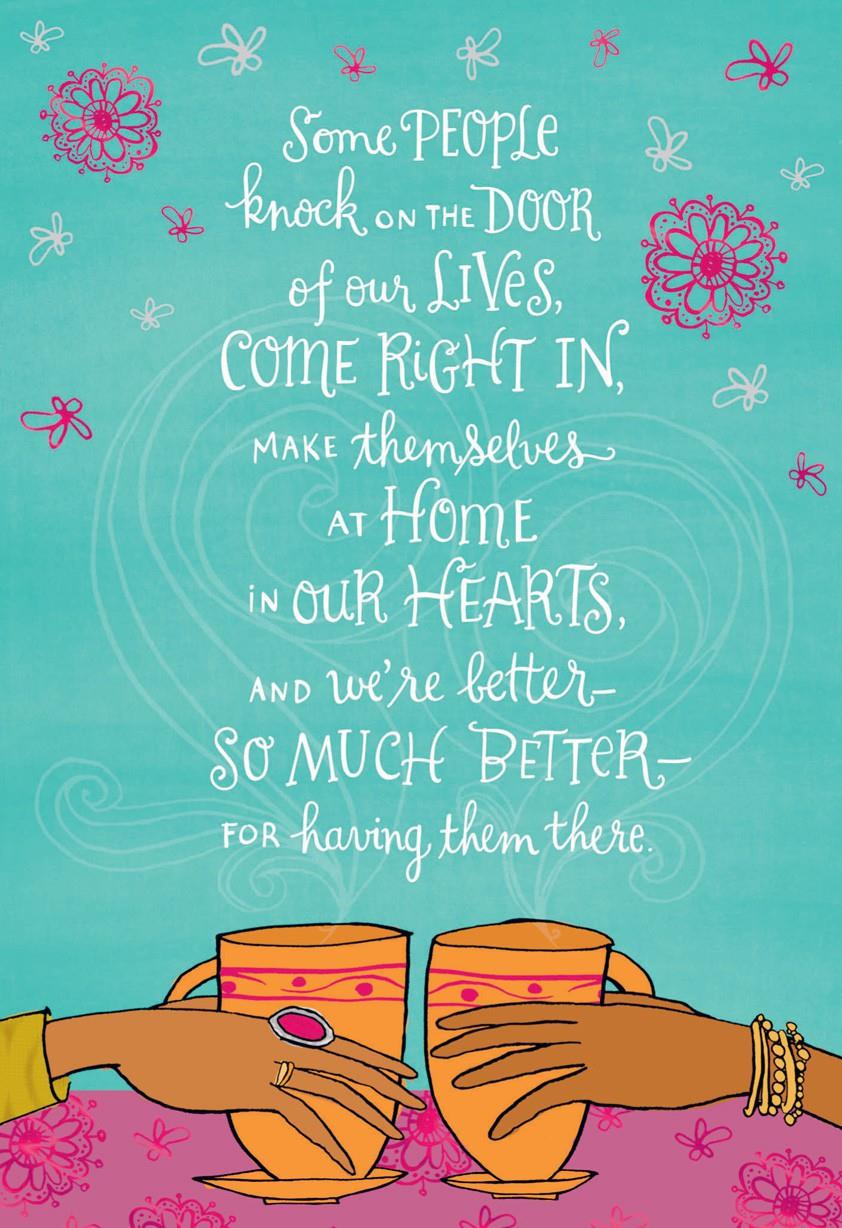 Some PEOPLE
knock ON THE DOOR
of our LIVeS,
COME RiGHT IN,
MAKE themselves
AT HOME
iN OUR HEARTS,
AND we're better—
SO MUCH BETTeR—
FOR having them there.